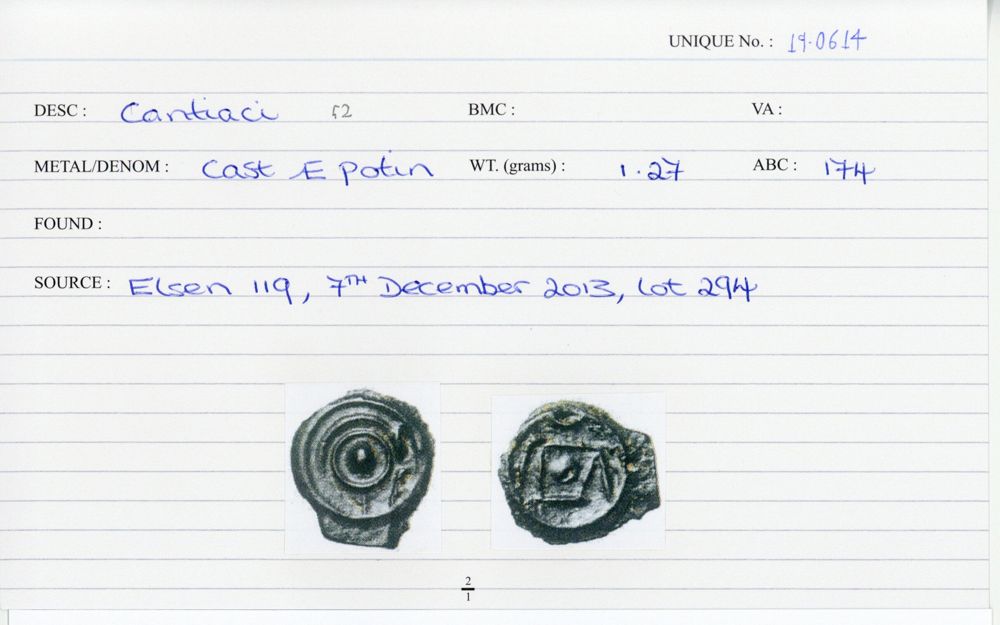 UNIQUE No. : 19.0614
DESC : Cantiaci 52 BMC : VA :
METAL/DENOM : Cast Æ Potin WT. (grams) : 1.27 ABC : 174
FOUND :
SOURCE : Elsen 119, 7TH December 2013, Lot 294
2
1